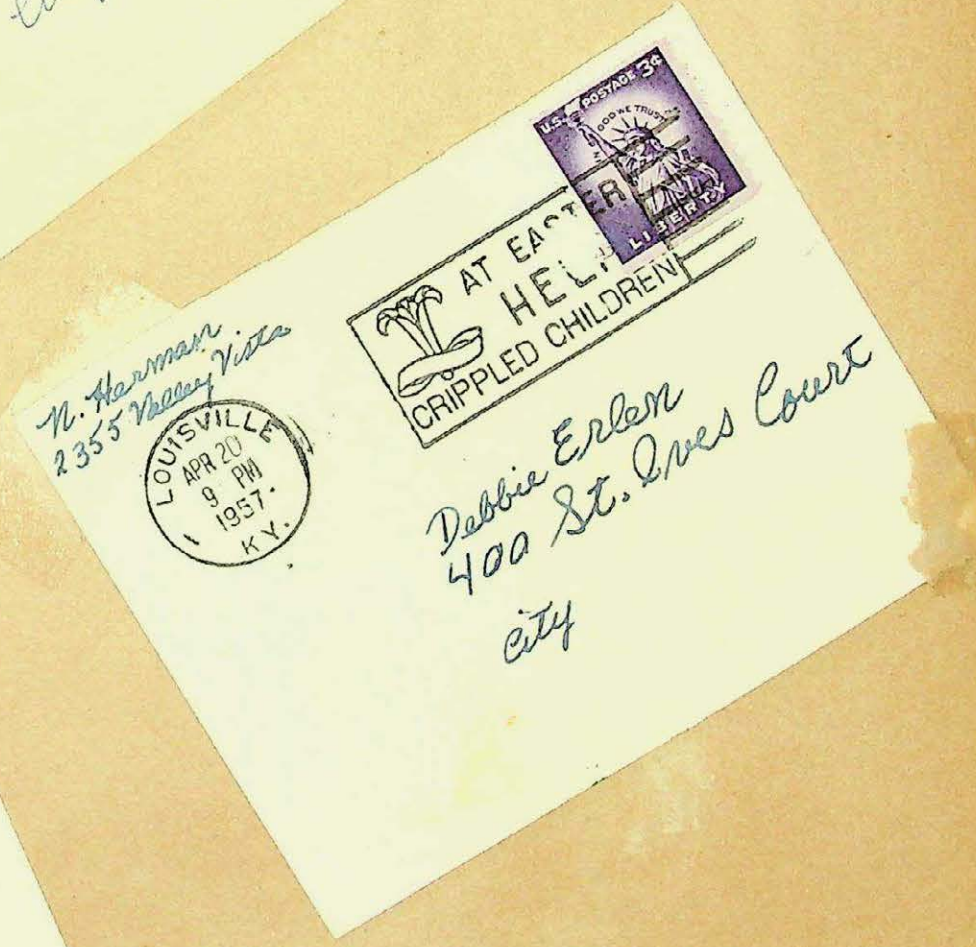 N. Herman
2355 Valley Vista
LOUISVILLE
APR 20
9 PM
1957
KY.
AT EASTER
HELP
CRIPPLED CHILDREN
U.S. POSTAGE 3¢
IN GOD WE TRUST
LIBERTY
Debbie Erlen
400 St. Ives Court
City